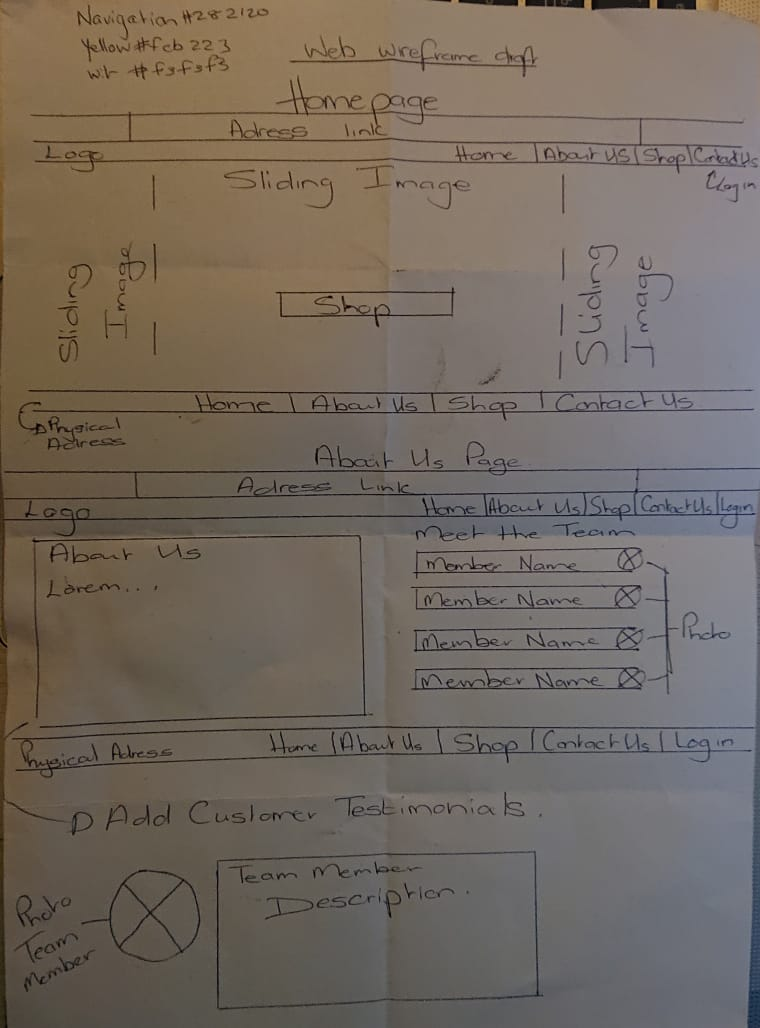 Navigation #282120
Yellow #feb223
wit #f3f3f3
Web wireframe draft
Homepage
Adress link
Logo Home | About US | Shop | Contact Us
Login
Sliding Image
Sliding Image
Shop
Sliding Image
Home | About Us | Shop | Contact Us
Physical Adress
About Us Page
Adress Link
Logo Home | About Us | Shop | Contact Us | Login
Meet the Team
About Us
Lorem...
Member Name
Member Name
Member Name
Member Name
Photo
Physical Adress Home | About Us | Shop | Contact Us | Login
Add Customer Testimonials.
Photo Team Member
Team Member
Description.